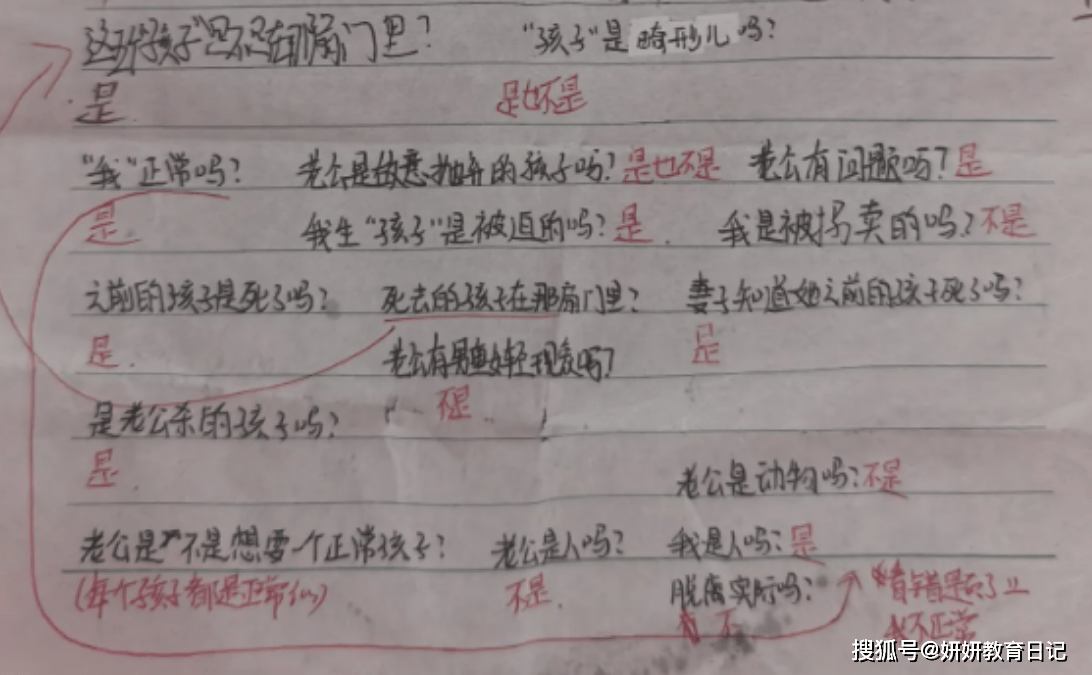 这孩子是不是在那扇门里？ "孩子"是畸形儿吗？
是 是也不是
"我"正常吗？ 老公是故意抛弃的孩子吗？是也不是 老公有问题吗？是
是 我生"孩子"是被迫的吗？是 我是被拐卖的吗？不是
之前的孩子是死了吗？ 死去的孩子在那扇门里？ 妻子知道她之前的孩子死了吗？
是 老公有男重女轻现象吗？ 是
是老公杀的孩子吗？ 不是
是 老公是动物吗？不是
老公是不是想要一个正常孩子？ 老公是人吗？ 我是人吗？是
(每个孩子都是正常的) 不是 脱离实际吗？
不正常
搜狐号@妍妍教育日记